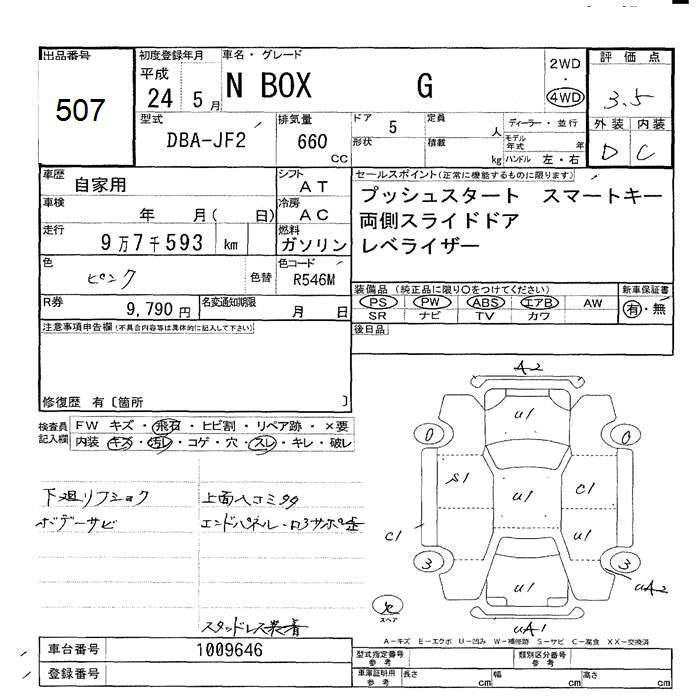 出品番号 初度登録年月 車名・グレード 2WD 評価点
平成
507 24 5月 N BOX G ・ 4WD 3.5
型式 排気量 ドア 5 定員 人 ディーラー・並行 外装 内装
DBA-JF2 660 cc 形状 積載 kg モデル年式 年 D C
ハンドル 左・右
車歴 自家用 シフト AT セールスポイント(正常に機能するものに限ります)
車検 年 月( 日) 冷房 AC プッシュスタート スマートキー
両側スライドドア
走行 9万7千593 km 燃料 ガソリン レベライザー
色 ピンク 色替 色コード R546M
装備品(純正品に限り○をつけてください) 新車保証書
R券 9,790円 名変通知期限 月 日 PS PW ABS エアB AW 有・無
SR ナビ TV カワ
注意事項申告欄(不具合内容等は具体的に記入して下さい) 後日品
修復歴 有〔箇所 〕
検査員記入欄 FW キズ・飛石・ヒビ割・リペア跡・×要
内装 キズ・汚レ・コゲ・穴・スレ・キレ・破レ
下廻リフショク 上面ヘコミ
ボデーサビ エンドパネル・
スタッドレス装着
A2
U1
0 0
S1 U1 C1
C1 U1
3 3
U1 UA2
スペア
UA1
A-キズ E-エクボ U-凹み W-補修跡 S-サビ C-腐食 XX-交換済
車台番号 1009646 型式指定番号 参考 類別区分番号 参考
登録番号 車庫証明用 参考 長さ cm 幅 cm 高さ cm